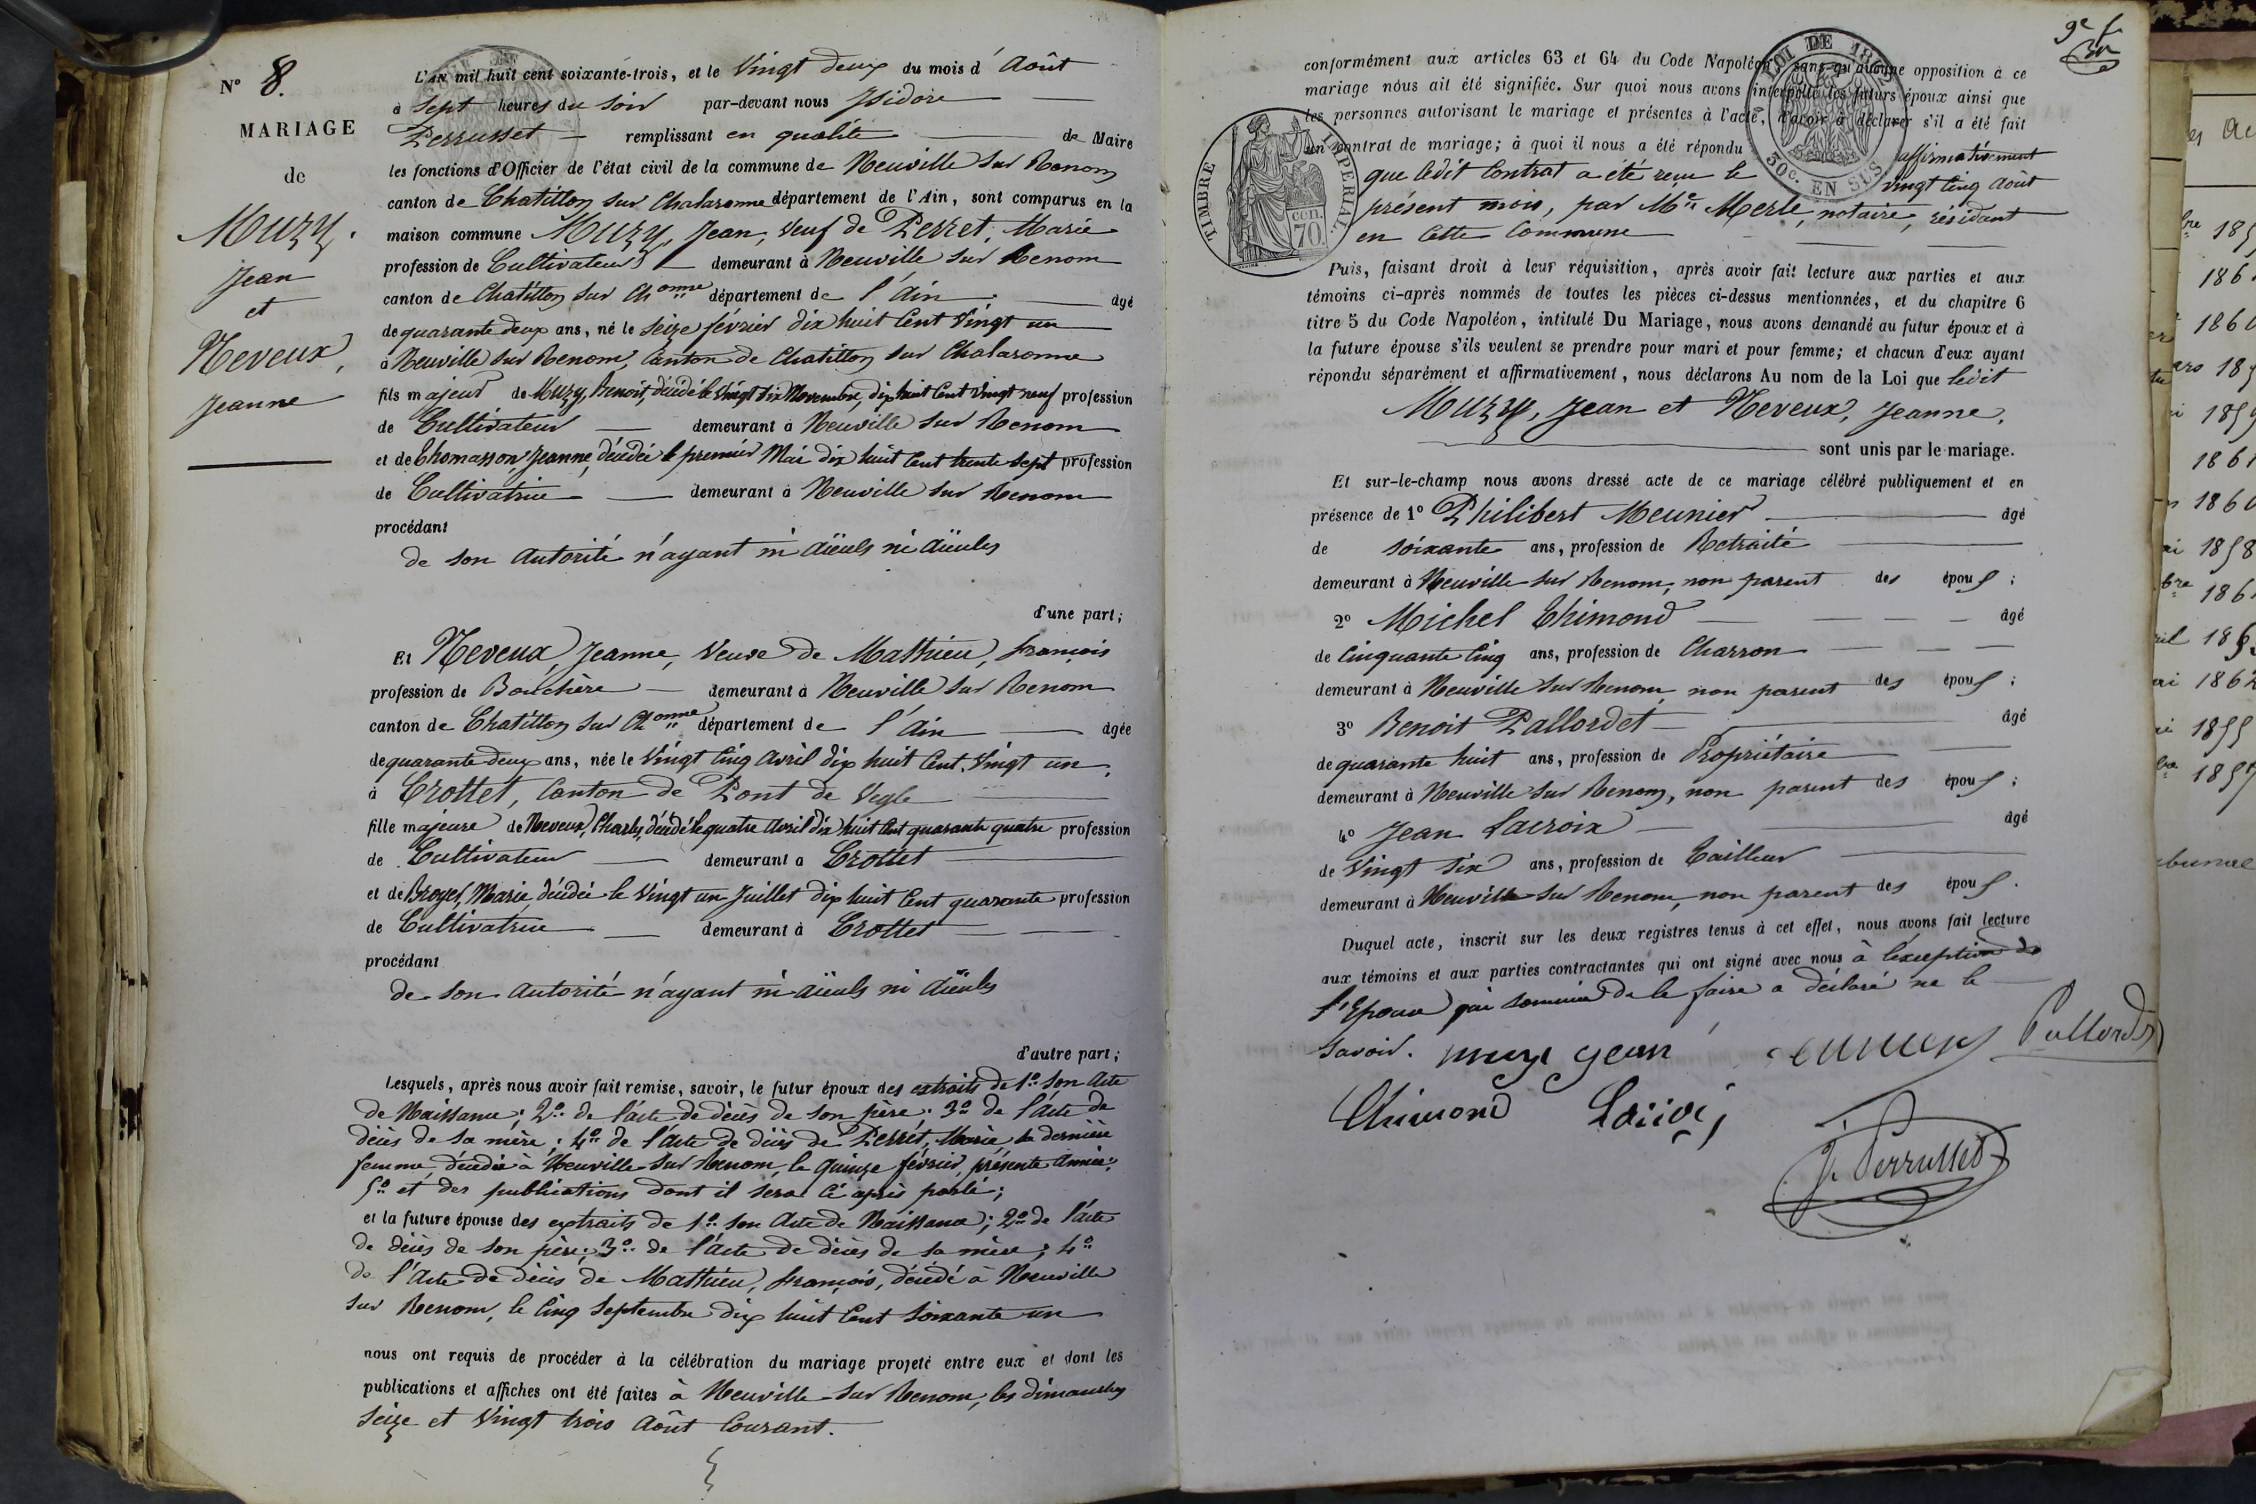 N° 8.
MARIAGE
de
Muzy,
Jean
et
Neveux,
Jeanne
L'AN mil huit cent soixante-trois, et le Vingt deux du mois d'Août
à Sept heures du Soir par-devant nous Isidore
Perrusset remplissant en qualité de Maire
les fonctions d'Officier de l'état civil de la commune de Neuville sur Renom
canton de Chatillon sur Chalaronne département de l'Ain, sont comparus en la
maison commune Muzy, Jean, veuf de Perret, Marie
profession de Cultivateur demeurant à Neuville sur Renom
canton de Chatillon sur Chonne département de l'Ain âgé
de quarante deux ans, né le seize février dix huit Cent Vingt un
à Neuville sur Renom, Canton de Chatillon sur Chalaronne
fils majeur de Muzy, Benoit, décédé le vingt six Novembre, dix huit Cent Vingt neuf profession
de Cultivateur demeurant à Neuville sur Renom
et de Thomasson, Jeanne, décédée le premier Mai dix huit Cent trente sept profession
de Cultivatrice demeurant à Neuville sur Renom
procédant
de son autorité n'ayant ni aïeuls ni aïeules
d'une part;
Et Neveux, Jeanne, Veuve de Mathieu, françois
profession de Bouchère demeurant à Neuville sur Renom
canton de Chatillon sur Chonne département de l'Ain âgée
de quarante deux ans, née le Vingt Cinq Avril dix huit Cent Vingt un,
à Crottet, Canton de Pont de Vesle
fille majeure de Neveux, Charles, décédé le quatre Avril dix huit Cent quarante quatre profession
de Cultivateur demeurant à Crottet
et de Broyer, Marie, décédée le Vingt un Juillet dix huit Cent quarante profession
de Cultivatrice demeurant à Crottet
procédant
de son autorité n'ayant ni aïeuls ni aïeules
d'autre part;
Lesquels, après nous avoir fait remise, savoir, le futur époux des extraits de 1° son Acte
de Naissance; 2° de l'acte de décès de son père; 3° de l'acte de
décès de sa mère; 4° de l'Acte de décès de Perret, Marie sa dernière
femme, décédée à Neuville sur Renom, le quinze février, présente année;
5° et des publications dont il sera ci après parlé;
et la future épouse des extraits de 1° son Acte de Naissance; 2° de l'acte
de décès de son père; 3° de l'Acte de décès de sa mère; 4°
de l'Acte de décès de Mathieu, françois, décédé à Neuville
sur Renom, le Cinq Septembre dix huit Cent Soixante un
nous ont requis de procéder à la célébration du mariage projeté entre eux et dont les
publications et affiches ont été faites à Neuville sur Renom, les dimanches
seize et Vingt trois Août Courant.
conformément aux articles 63 et 64 du Code Napoléon, sans qu'aucune opposition à ce
mariage nous ait été signifiée. Sur quoi nous avons interpellé les futurs époux ainsi que
les personnes autorisant le mariage et présentes à l'acte, d'avoir à déclarer s'il a été fait
un contrat de mariage; à quoi il nous a été répondu affirmativement
que ledit Contrat a été reçu le vingt Cinq Août
présent mois, par Me Merle, notaire, résidant
en Cette Commune
TIMBRE IMPERIAL
cen.
70.
LOI DE 1862
50c. EN SUS
9e f
Puis, faisant droit à leur réquisition, après avoir fait lecture aux parties et aux
témoins ci-après nommés de toutes les pièces ci-dessus mentionnées, et du chapitre 6
titre 5 du Code Napoléon, intitulé Du Mariage, nous avons demandé au futur époux et à
la future épouse s'ils veulent se prendre pour mari et pour femme; et chacun d'eux ayant
répondu séparément et affirmativement, nous déclarons Au nom de la Loi que ledit
Muzy, Jean et Neveux, Jeanne,
sont unis par le mariage.
Et sur-le-champ nous avons dressé acte de ce mariage célébré publiquement et en
présence de 1° Philibert Meunier âgé
de soixante ans, profession de Retraité
demeurant à Neuville sur Renom, non parent des époux;
2° Michel Thimond âgé
de Cinquante Cinq ans, profession de Charron
demeurant à Neuville sur Renom, non parent des époux;
3° Benoit Pallordet âgé
de quarante huit ans, profession de Propriétaire
demeurant à Neuville sur Renom, non parent des époux;
4° Jean Lacroix âgé
de Vingt six ans, profession de Tailleur
demeurant à Neuville sur Renom, non parent des époux.
Duquel acte, inscrit sur les deux registres tenus à cet effet, nous avons fait lecture
aux témoins et aux parties contractantes qui ont signé avec nous à l'exception de
l'Epouse qui sommée de le faire a déclaré ne le
savoir. muzy jean Pallordet
Thimond
J. Perrusset